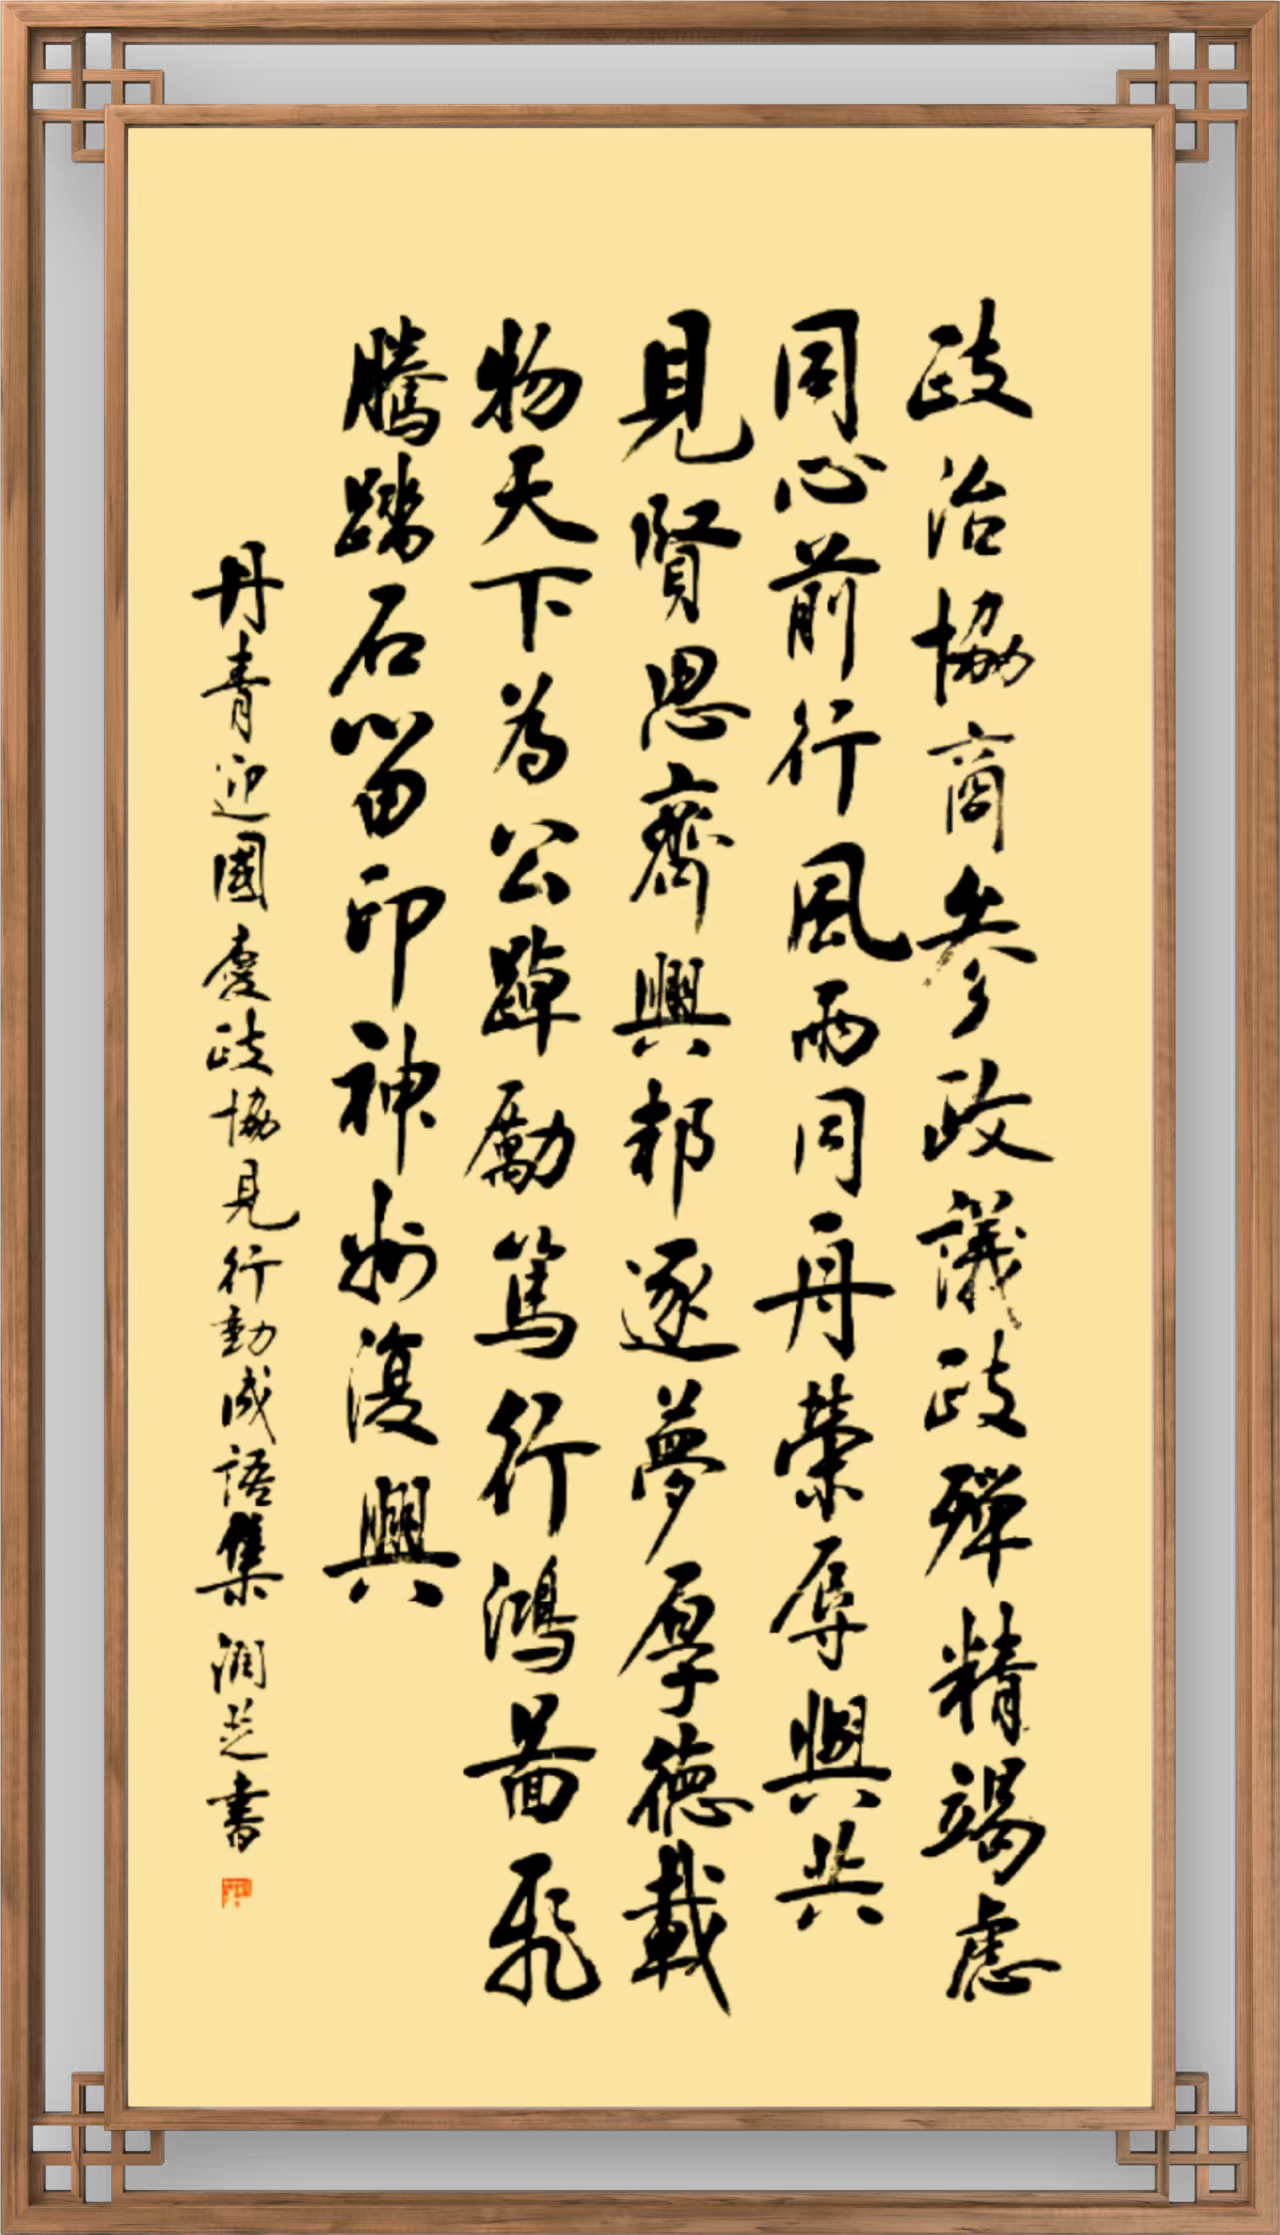 政治協商參政議政殫精竭慮
同心前行風雨同舟榮辱與共
見賢思齊興邦逐夢厚德載
物天下為公踔勵篤行鴻圖飛
騰踏石留印神州復興
丹青迎國慶政協見行動成語集 潤芝書